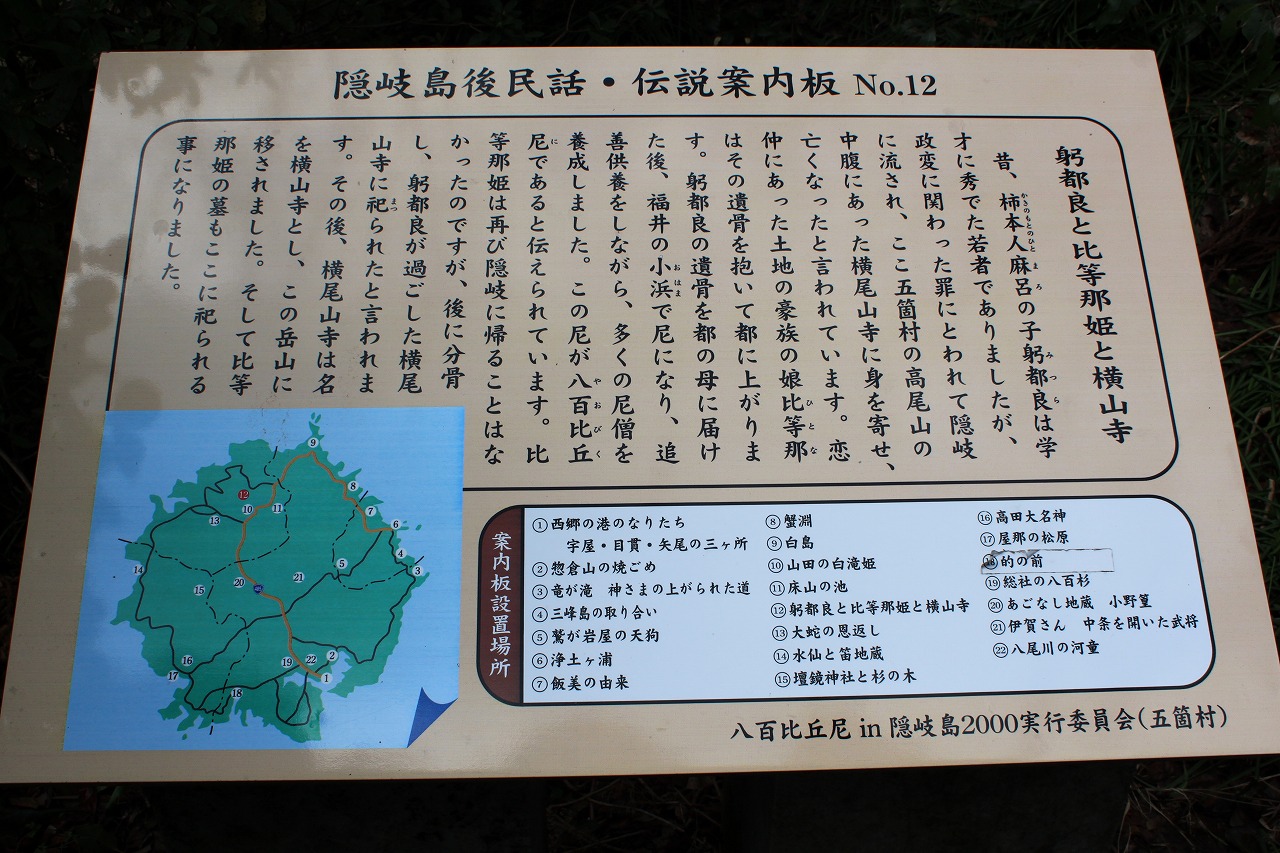 隠岐島後民話・伝説案内板 No.12
躬都良と比等那姫と横山寺
昔、柿本人麻呂の子躬都良は学
かきのもとのひとまろ
みつら
才に秀でた若者でありましたが、
政変に関わった罪にとわれて隠岐
に流され、ここ五箇村の高尾山の
中腹にあった横尾山寺に身を寄せ、
亡くなったと言われています。恋
仲にあった土地の豪族の娘比等那
ひとな
はその遺骨を抱いて都に上がりま
す。躬都良の遺骨を都の母に届け
た後、福井の小浜で尼になり、追
おはま
善供養をしながら、多くの尼僧を
養成しました。この尼が八百比丘
やおびく
尼であると伝えられています。比
に
等那姫は再び隠岐に帰ることはな
かったのですが、後に分骨
し、躬都良が過ごした横尾
山寺に祀られたと言われま
まつ
す。その後、横尾山寺は名
を横山寺とし、この岳山に
移されました。そして比等
那姫の墓もここに祀られる
事になりました。
9
8
7
6
12
10
11
13
4
3
5
14
15
20
21
16
17
18
19
22
2
1
案内板設置場所
①西郷の港のなりたち
宇屋・目貫・矢尾の三ヶ所
②惣倉山の焼ごめ
③竜が滝 神さまの上がられた道
④三峰島の取り合い
⑤鷲が岩屋の天狗
⑥浄土ヶ浦
⑦飯美の由来
⑧蟹淵
⑨白島
⑩山田の白滝姫
⑪床山の池
⑫躬都良と比等那姫と横山寺
⑬大蛇の恩返し
⑭水仙と笛地蔵
⑮壇鏡神社と杉の木
⑯高田大名神
⑰屋那の松原
⑱的の前
⑲総社の八百杉
⑳あごなし地蔵 小野篁
㉑伊賀さん 中条を開いた武将
㉒八尾川の河童
八百比丘尼 in 隠岐島2000実行委員会(五箇村)